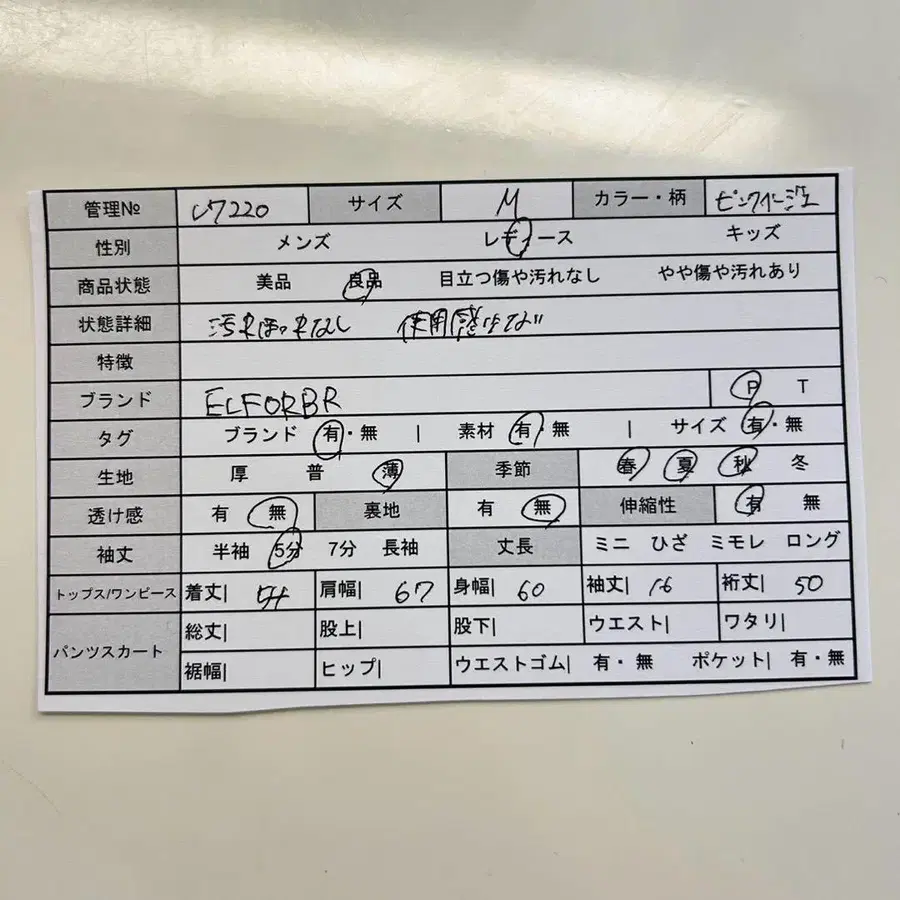 管理№ 47220 サイズ M カラー・柄 ピンクイージュエ
性別 メンズ レディース キッズ
商品状態 美品 良品 目立つ傷や汚れなし やや傷や汚れあり
状態詳細 汚れほつれなし 使用感
特徴
ブランド ELFORBR P T
タグ ブランド 有・無 | 素材 有・無 | サイズ 有・無
生地 厚 普 薄 季節 春 夏 秋 冬
透け感 有 無 裏地 有 無 伸縮性 有 無
袖丈 半袖 5分 7分 長袖 丈長 ミニ ひざ ミモレ ロング
トップス/ワンピース 着丈| 肩幅| 67 身幅| 60 袖丈| 16 裄丈| 50
パンツスカート 総丈| 股上| 股下| ウエスト| ワタリ|
裾幅| ヒップ| ウエストゴム| 有・無 ポケット| 有・無